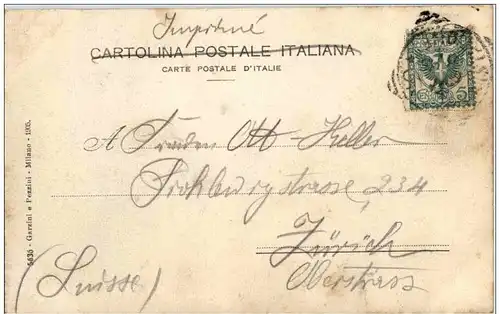 Imprimé
CARTOLINA POSTALE ITALIANA
CARTE POSTALE D'ITALIE
A Frieden Ott-Keller
Frohburgstrasse 234
Zürich
Oberstrass
(Suisse)
5635 - Garzini e Pezzini - Milano - 1905.